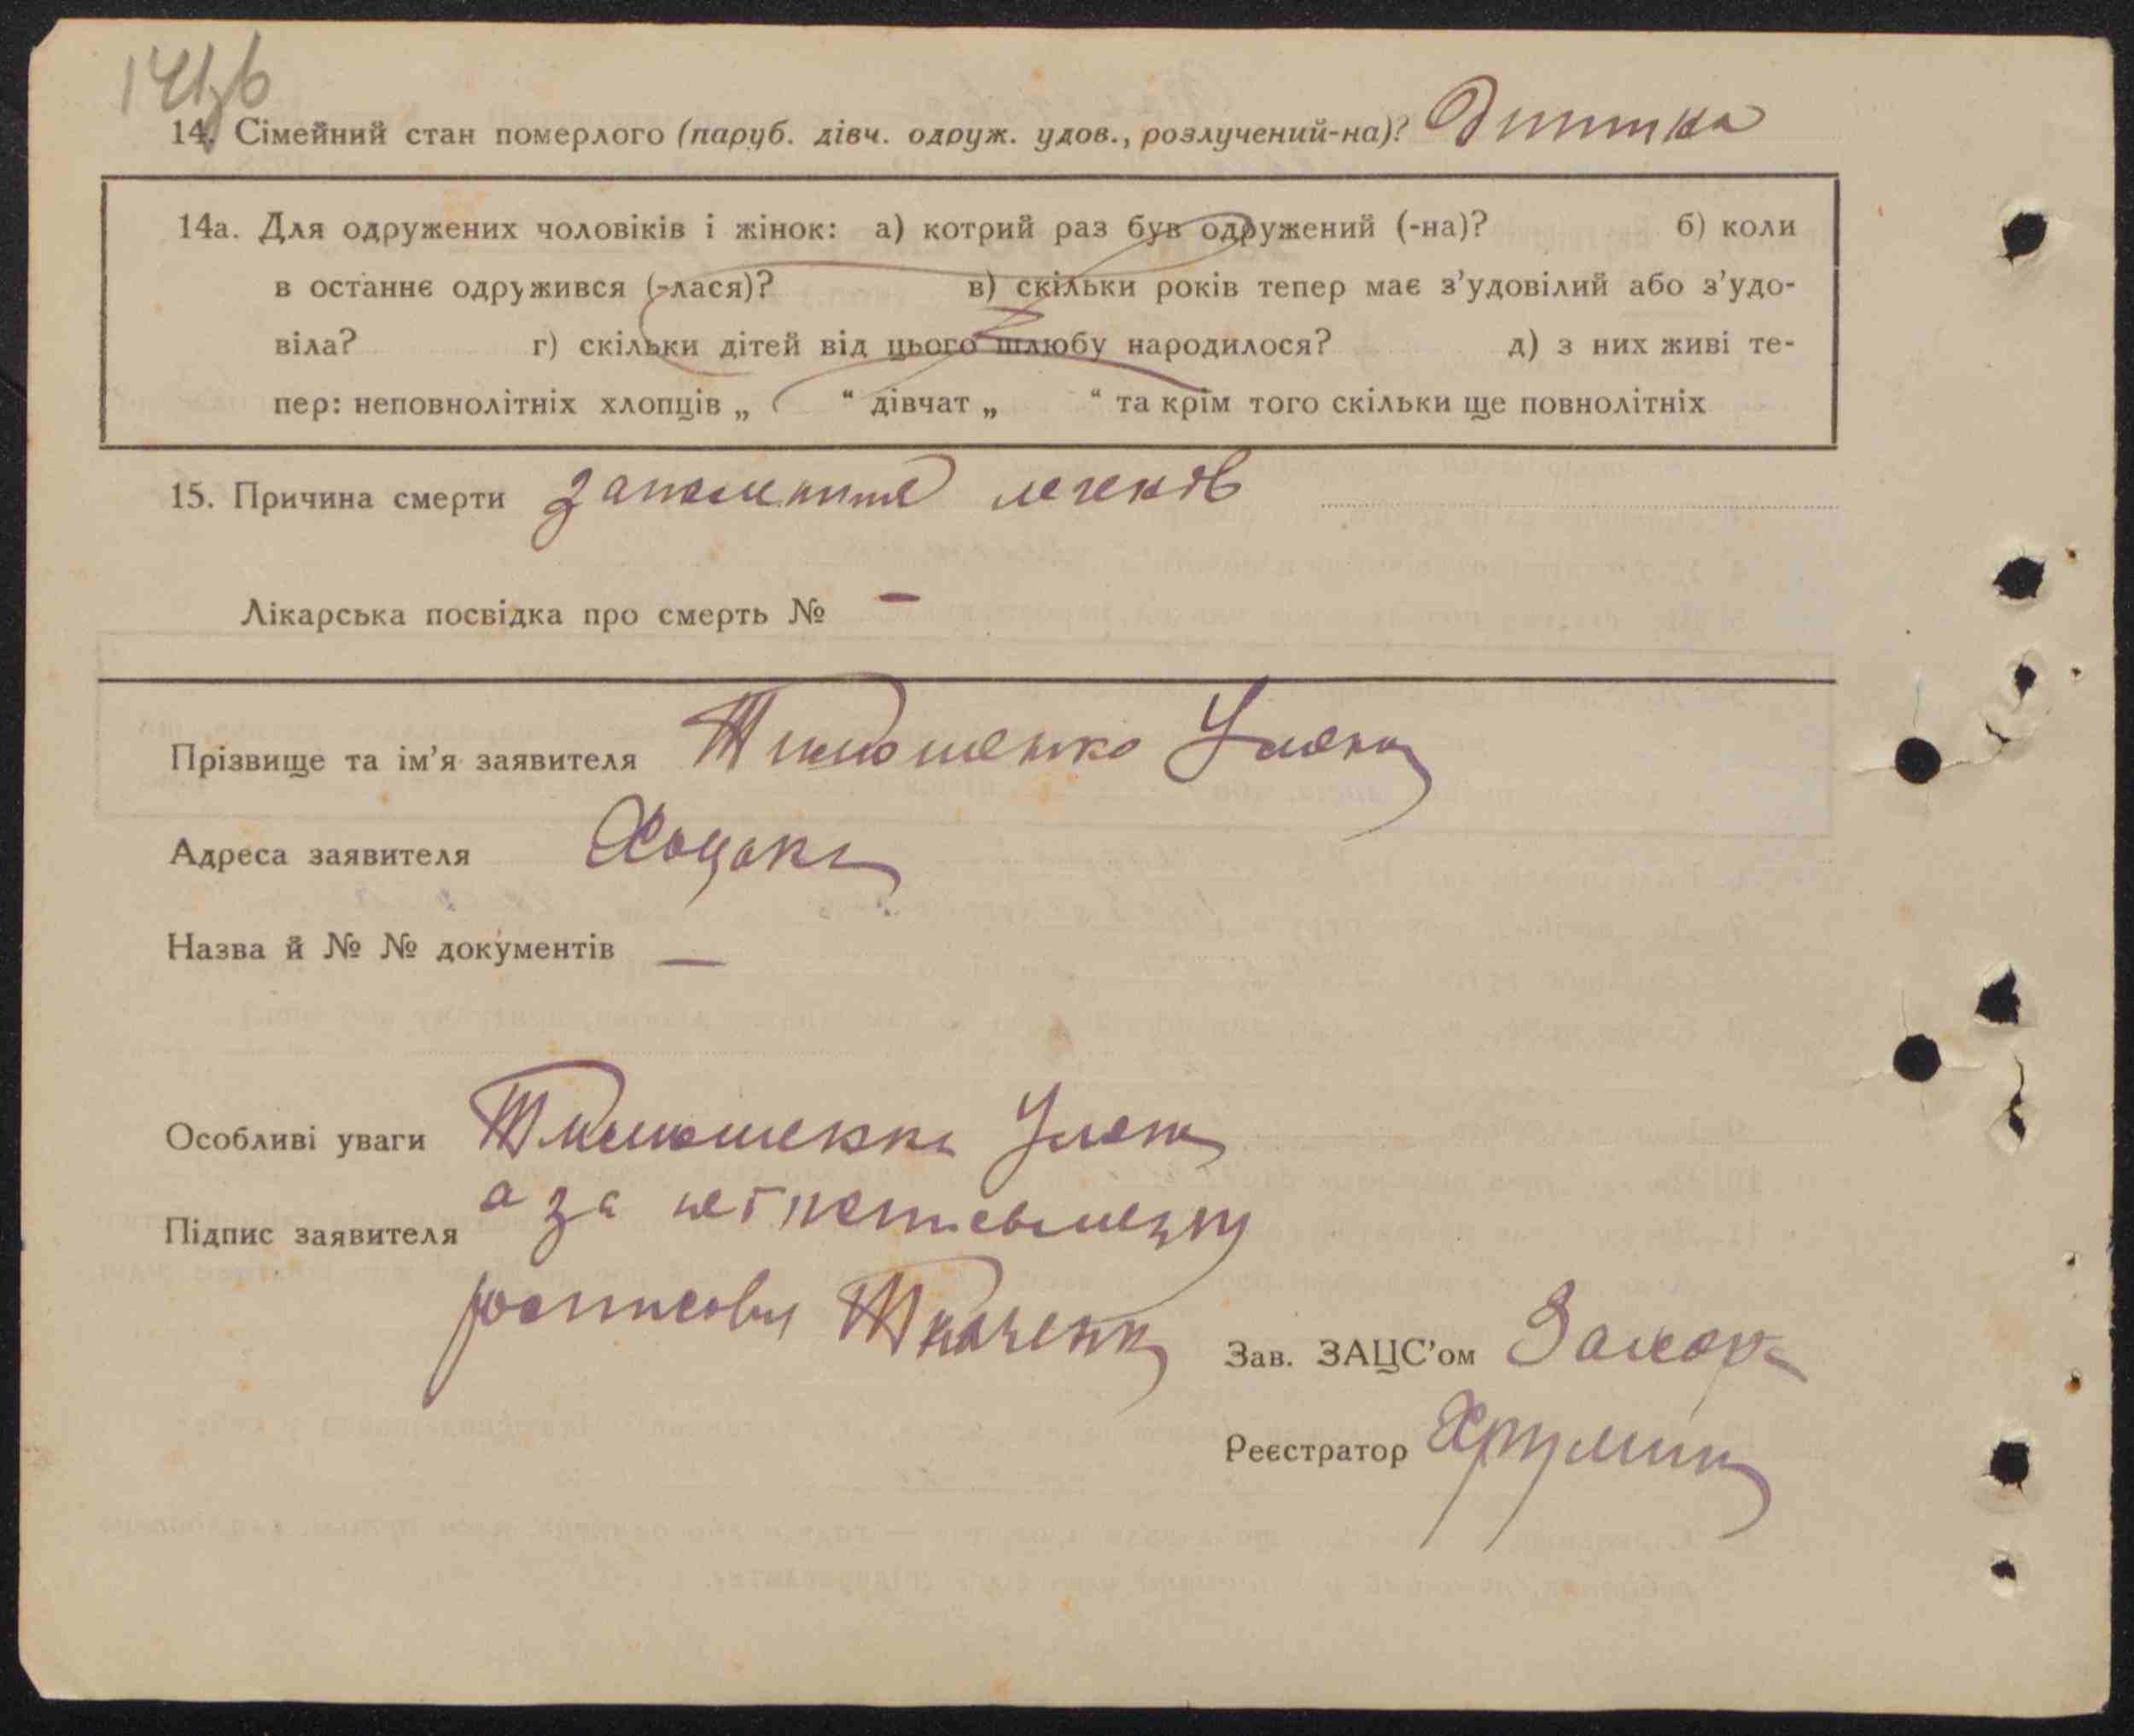 14. Сімейний стан померлого (паруб. дівч. одруж. удов., розлучений-на)? Дитика
14а. Для одружених чоловіків і жінок: а) котрий раз був одружений (-на)? б) коли
в останнє одружився (-лася)? в) скільки років тепер має з’удовілий або з’удо-
віла? г) скільки дітей від цього шлюбу народилося? д) з них живі те-
пер: неповнолітніх хлопців „ “ дівчат „ “ та крім того скільки ще повнолітніх
15. Причина смерти запаленние легенів
Лікарська посвідка про смерть № —
Прізвище та ім’я заявителя Тимошенко Уляна
Адреса заявителя Хоцьки
Назва й № № документів —
Особливі уваги Тимошенко Уляна
а за неї
Підпис заявителя
росписовся Ткаченко
Зав. ЗАЦС’ом
Реєстратор